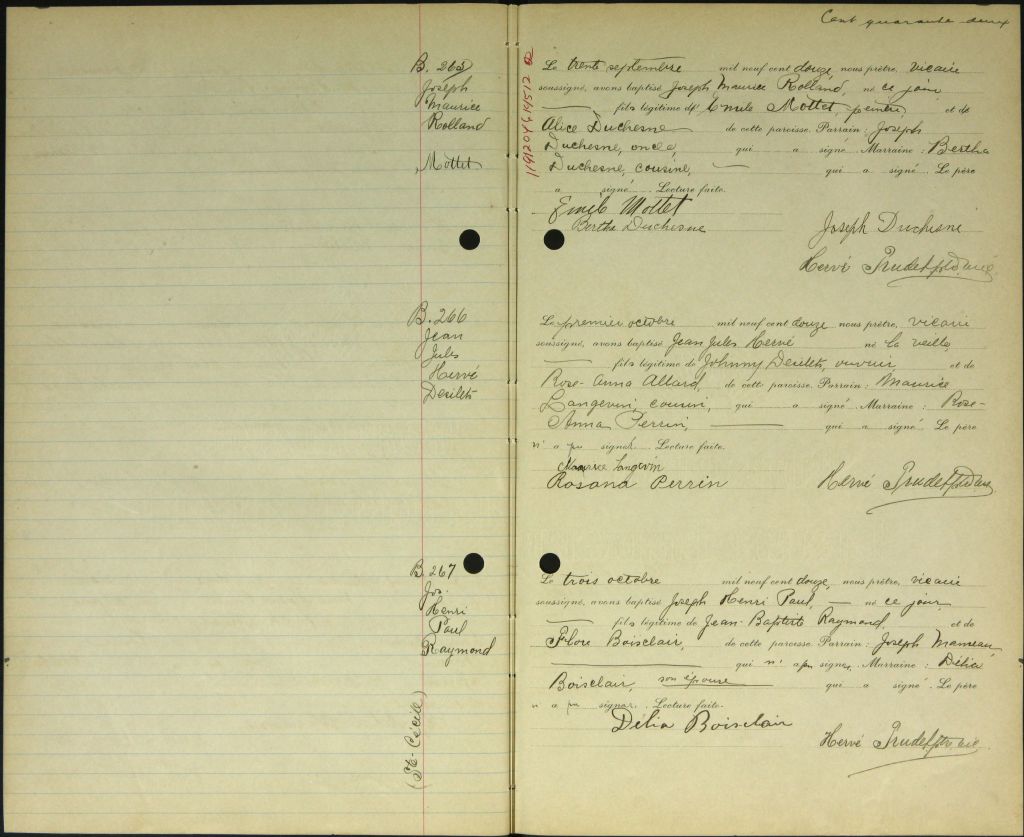 Cent quarante-deux
B. 265
Joseph
Maurice
Rolland
Mottet
Le trente septembre mil neuf cent douze, nous prêtre, vicaire
soussigné, avons baptisé Joseph Maurice Rolland, né ce jour
fils légitime de Emile Mottet, peintre, et de
Alice Duchesne de cette paroisse. Parrain: Joseph
Duchesne, oncle, qui a signé. Marraine: Bertha
Duchesne, cousine, qui a signé. Le père
a signé. Lecture faite.
Emile Mottet
Bertha Duchesne
Joseph Duchesne
Hervé Trudel ptre vic.
B. 266
Jean
Jules
Hervé
Desilets
Le premier octobre mil neuf cent douze, nous prêtre, vicaire
soussigné, avons baptisé Jean Jules Hervé né la veille,
fils légitime de Johnny Desilets, ouvrier, et de
Rose-Anna Allard, de cette paroisse. Parrain: Maurice
Langevin, cousin, qui a signé. Marraine: Rose-
Anna Perrin, qui a signé. Le père
n'a pu signer. Lecture faite.
Maurice Langevin
Rosana Perrin
Hervé Trudel ptre vic.
B. 267
Jos.
Henri
Paul
Raymond
Le trois octobre mil neuf cent douze, nous prêtre, vicaire
soussigné, avons baptisé Joseph Henri Paul, né ce jour
fils légitime de Jean-Baptiste Raymond, et de
Flore Boisclair, de cette paroisse. Parrain: Joseph
qui n'a pu signer. Marraine: Délia
Boisclair, son épouse qui a signé. Le père
n'a pu signer. Lecture faite.
Délia Boisclair
Hervé Trudel ptre vic.
(Ste-Cécile)